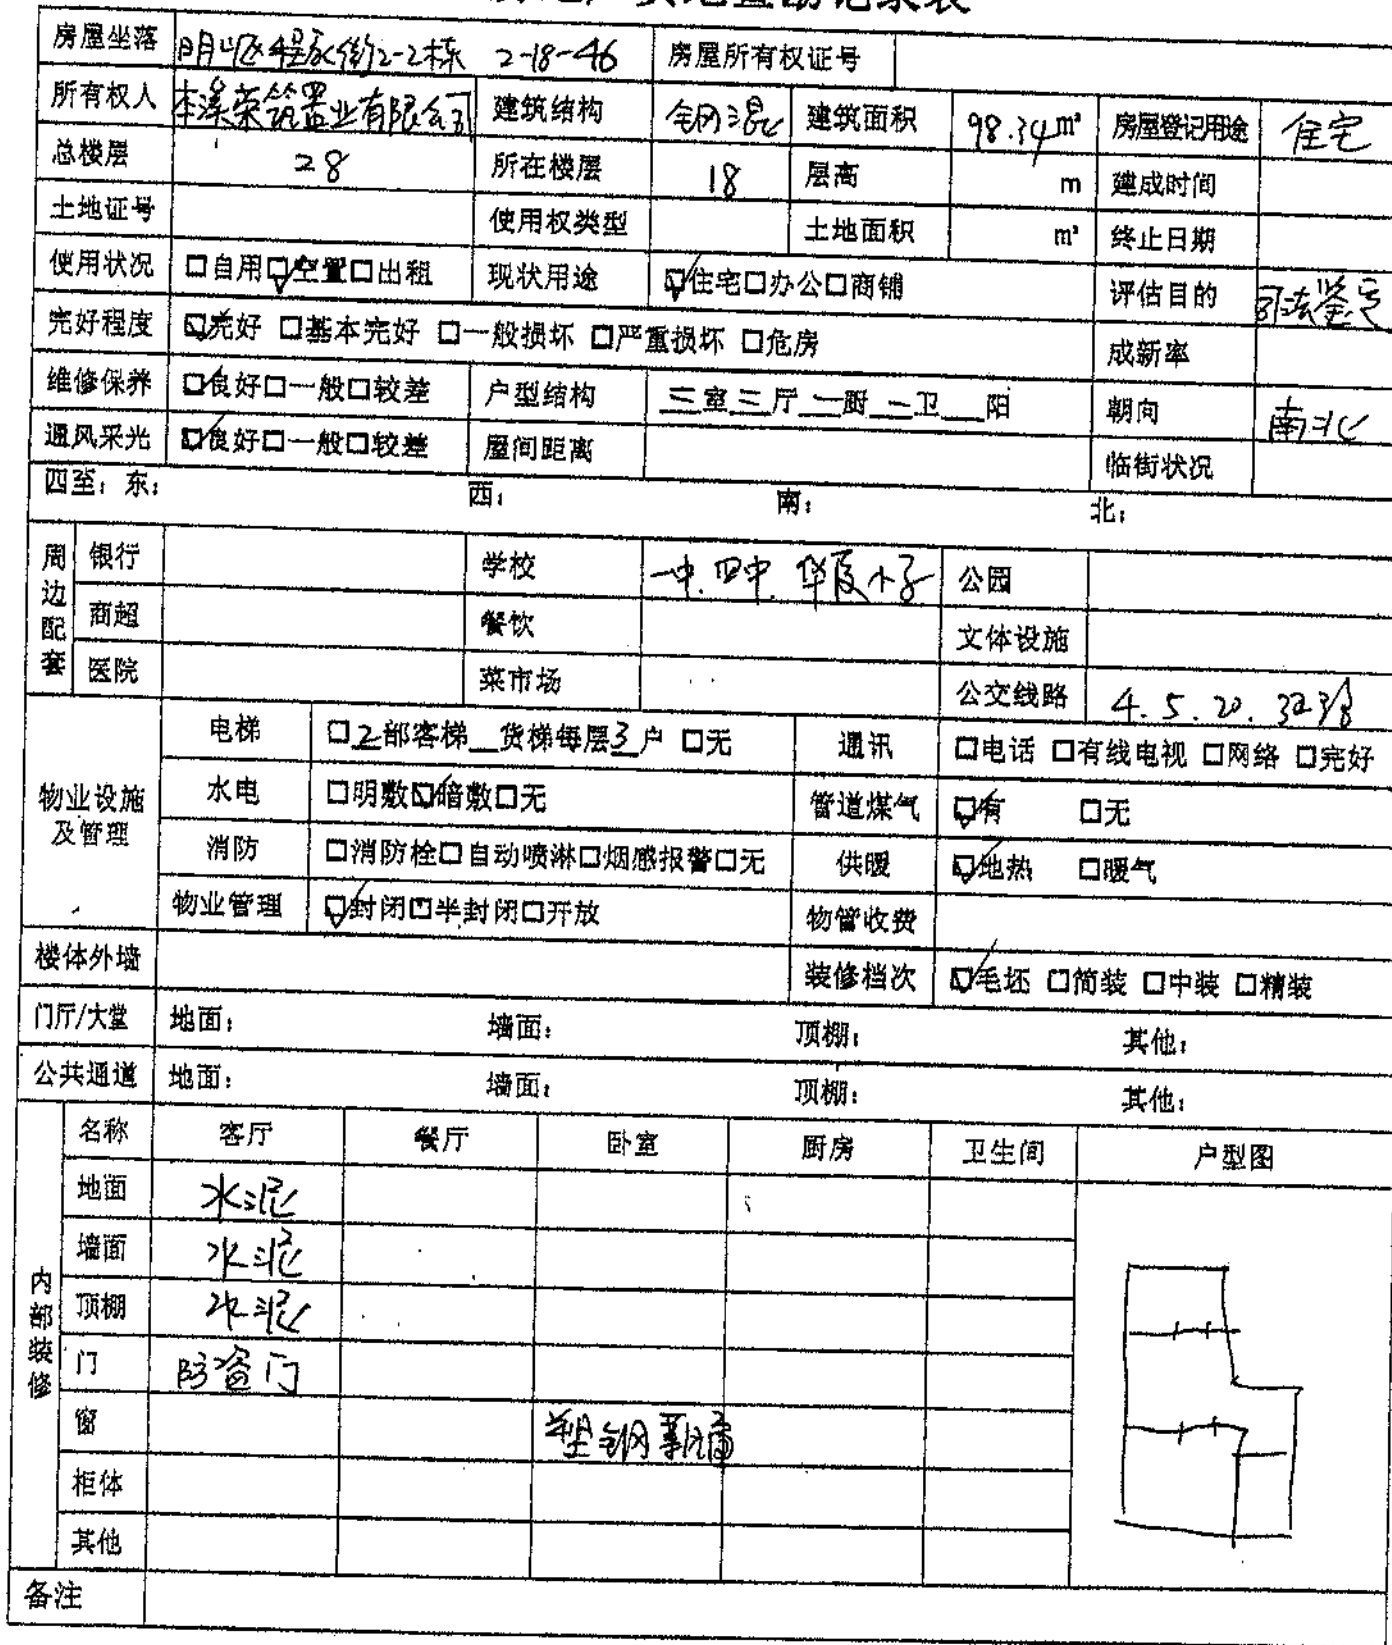 房屋坐落 明山区程家街2-2栋 2-18-46 房屋所有权证号
所有权人 本溪荣筑置业有限公司 建筑结构 钢混 建筑面积 98.34m² 房屋登记用途 住宅
总楼层 28 所在楼层 18 层高 m 建成时间
土地证号 使用权类型 土地面积 m² 终止日期
使用状况 □自用☑空置□出租 现状用途 ☑住宅□办公□商铺 评估目的 司法鉴定
完好程度 ☑完好 □基本完好 □一般损坏 □严重损坏 □危房 成新率
维修保养 ☑良好□一般□较差 户型结构 三室三厅一厨一卫__阳 朝向 南北
通风采光 ☑良好□一般□较差 屋间距离 临街状况
四至：东： 西： 南： 北：
周边配套 银行 学校 一中.四中.华夏小学 公园
商超 餐饮 文体设施
医院 菜市场 公交线路 4.5.20.32路
物业设施及管理 电梯 □2部客梯__货梯每层3户 □无 通讯 □电话 □有线电视 □网络 □完好
水电 □明敷☑暗敷□无 管道煤气 ☑有 □无
消防 □消防栓□自动喷淋□烟感报警□无 供暖 ☑地热 □暖气
物业管理 ☑封闭□半封闭□开放 物管收费
楼体外墙 装修档次 ☑毛坯 □简装 □中装 □精装
门厅/大堂 地面： 墙面： 顶棚： 其他：
公共通道 地面： 墙面： 顶棚： 其他：
内部装修 名称 客厅 餐厅 卧室 厨房 卫生间 户型图
地面 水泥
墙面 水泥
顶棚 水泥
门 防盗门
窗 塑钢
柜体
其他
备注